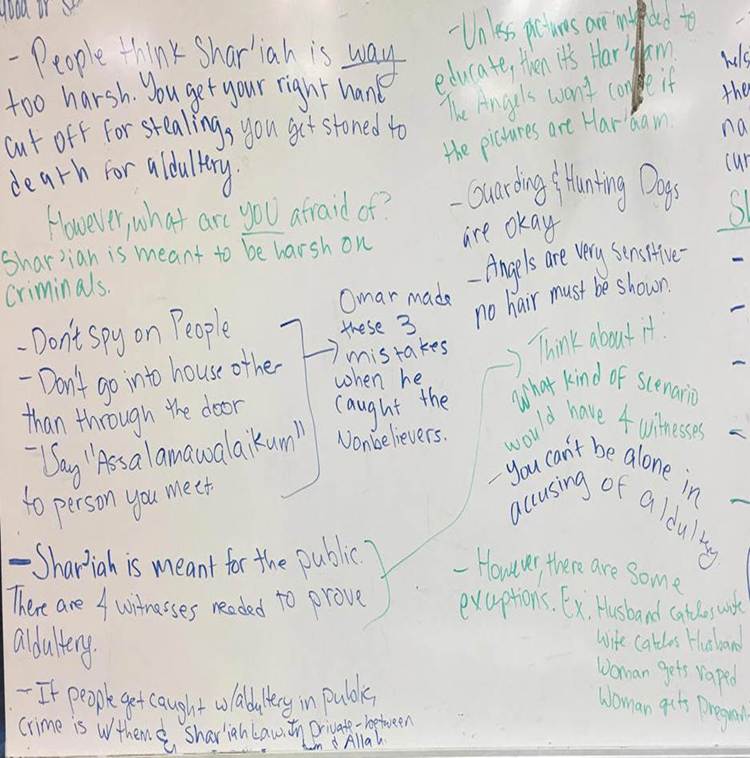 - People think Shar'iah is way
too harsh. You get your right hand
cut off for stealing, you get stoned to
death for aldultery.
However, what are YOU afraid of?
Shar'iah is meant to be harsh on
criminals.
- Don't spy on People
- Don't go into house other
than through the door
- Say "Assalamawalaikum"
to person you meet
Omar made
these 3
mistakes
when he
caught the
Nonbelievers.
- Shar'iah is meant for the public.
There are 4 witnesses needed to prove
aldultery.
- If people get caught w/aldultery in public,
crime is w/them & Shar'iah Law. In Private - between
& Allah.
- Unless pictures are intended to
educate, then it's Har'aam.
The Angels won't come if
the pictures are Har'aam.
- Guarding & Hunting Dogs
are okay
- Angels are very sensitive -
no hair must be shown.
Think about it:
What kind of scenario
would have 4 witnesses
- You can't be alone in
accusing of aldultry.
- However, there are some
exceptions. Ex: Husband catches wife
Wife catches Husband
Woman gets raped
Woman gets Pregnan